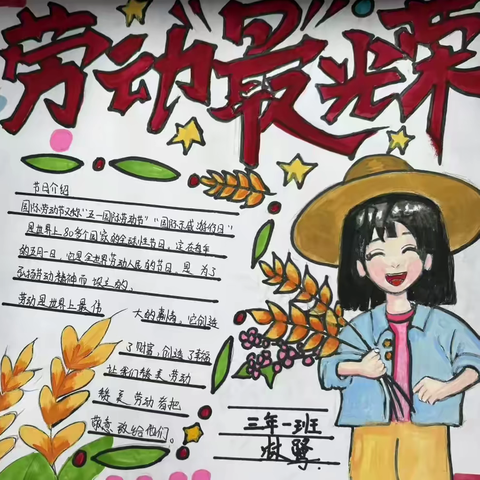 劳动"最"光荣
节日介绍
国际劳动节又称"五一国际劳动节""国际示威游行日"
是世界上80多个国家的全球性节日,定在每年
的五月一日,它是全世界劳动人民的节日,是为了
弘扬劳动精神而设立的。
劳动是世界上最伟大的事情,它创造
了财富,创造了
让我们赞美劳动
赞美劳动者把
敬意敬给他们。
三年一班